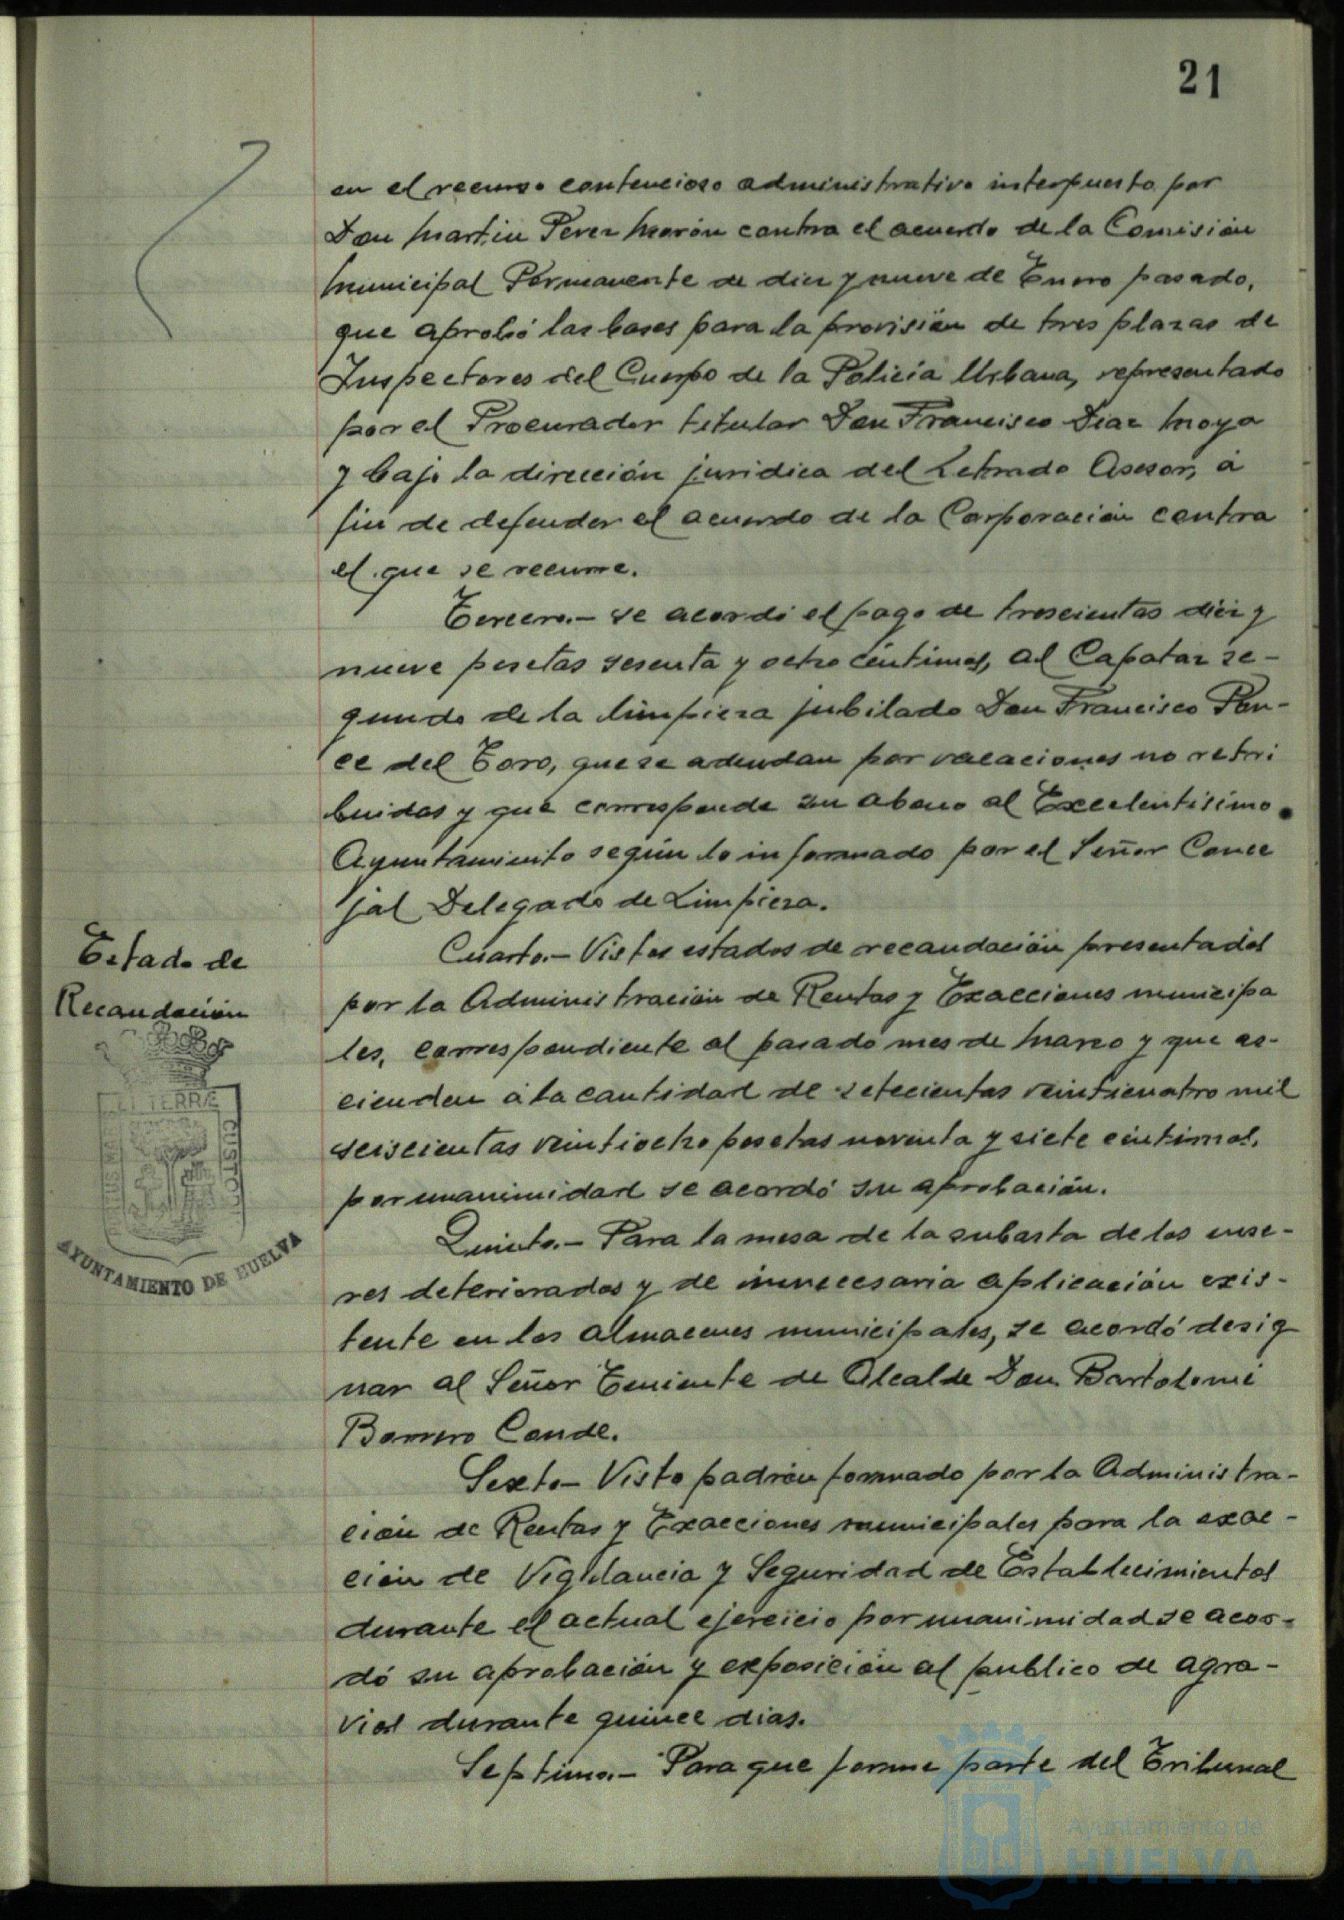 21
en el recurso contencioso administrativo interpuesto por
Don Martin Perez Morón contra el acuerdo de la Comisión
Municipal Permanente de diez y nueve de Enero pasado,
que aprobó las bases para la provisión de tres plazas de
Inspectores del Cuerpo de la Policía Urbana, representado
por el Procurador titular Don Francisco Diaz Moya
y bajo la dirección juridica del Letrado Asesor, á
fin de defender el acuerdo de la Corporación contra
el que se recurre.
Tercero.- Se acordó el pago de trescientas diez y
nueve pesetas sesenta y ocho céntimos, al Capataz se-
gundo de la limpieza jubilado Don Francisco Pon-
ce del Toro, que se adeudan por vacaciones no retri
buidas y que corresponde su abono al Excelentísimo
Ayuntamiento según lo informado por el Señor Conce
jal Delegado de Limpieza.
Estado de
Recaudación
Cuarto.- Vistos estados de recaudación presentados
por la Administración de Rentas y Exacciones municipa
les, correspondiente al pasado mes de Marzo y que as-
cienden á la cantidad de setecientas veinticuatro mil
seiscientas veintiocho pesetas noventa y siete céntimos,
por unanimidad se acordó su aprobación.
Quinto.- Para la mesa de la subasta de los ense-
res deteriorados y de innecesaria aplicación exis-
tente en los almacenes municipales, se acordó desig
nar al Señor Teniente de Alcalde Don Bartolomé
Borrero Conde.
Sexto- Visto padrón formado por la Administra-
ción de Rentas y Exacciones municipales para la exac-
ción de Vigilancia y Seguridad de Establecimientos
durante el actual ejercicio por unanimidad se acor-
dó su aprobación y exposición al publico de agra-
vios durante quince dias.
Septimo.- Para que forme parte del Tribunal
TERRÆ
CUSTODI
AYUNTAMIENTO DE HUELVA
Ayuntamiento de
HUELVA